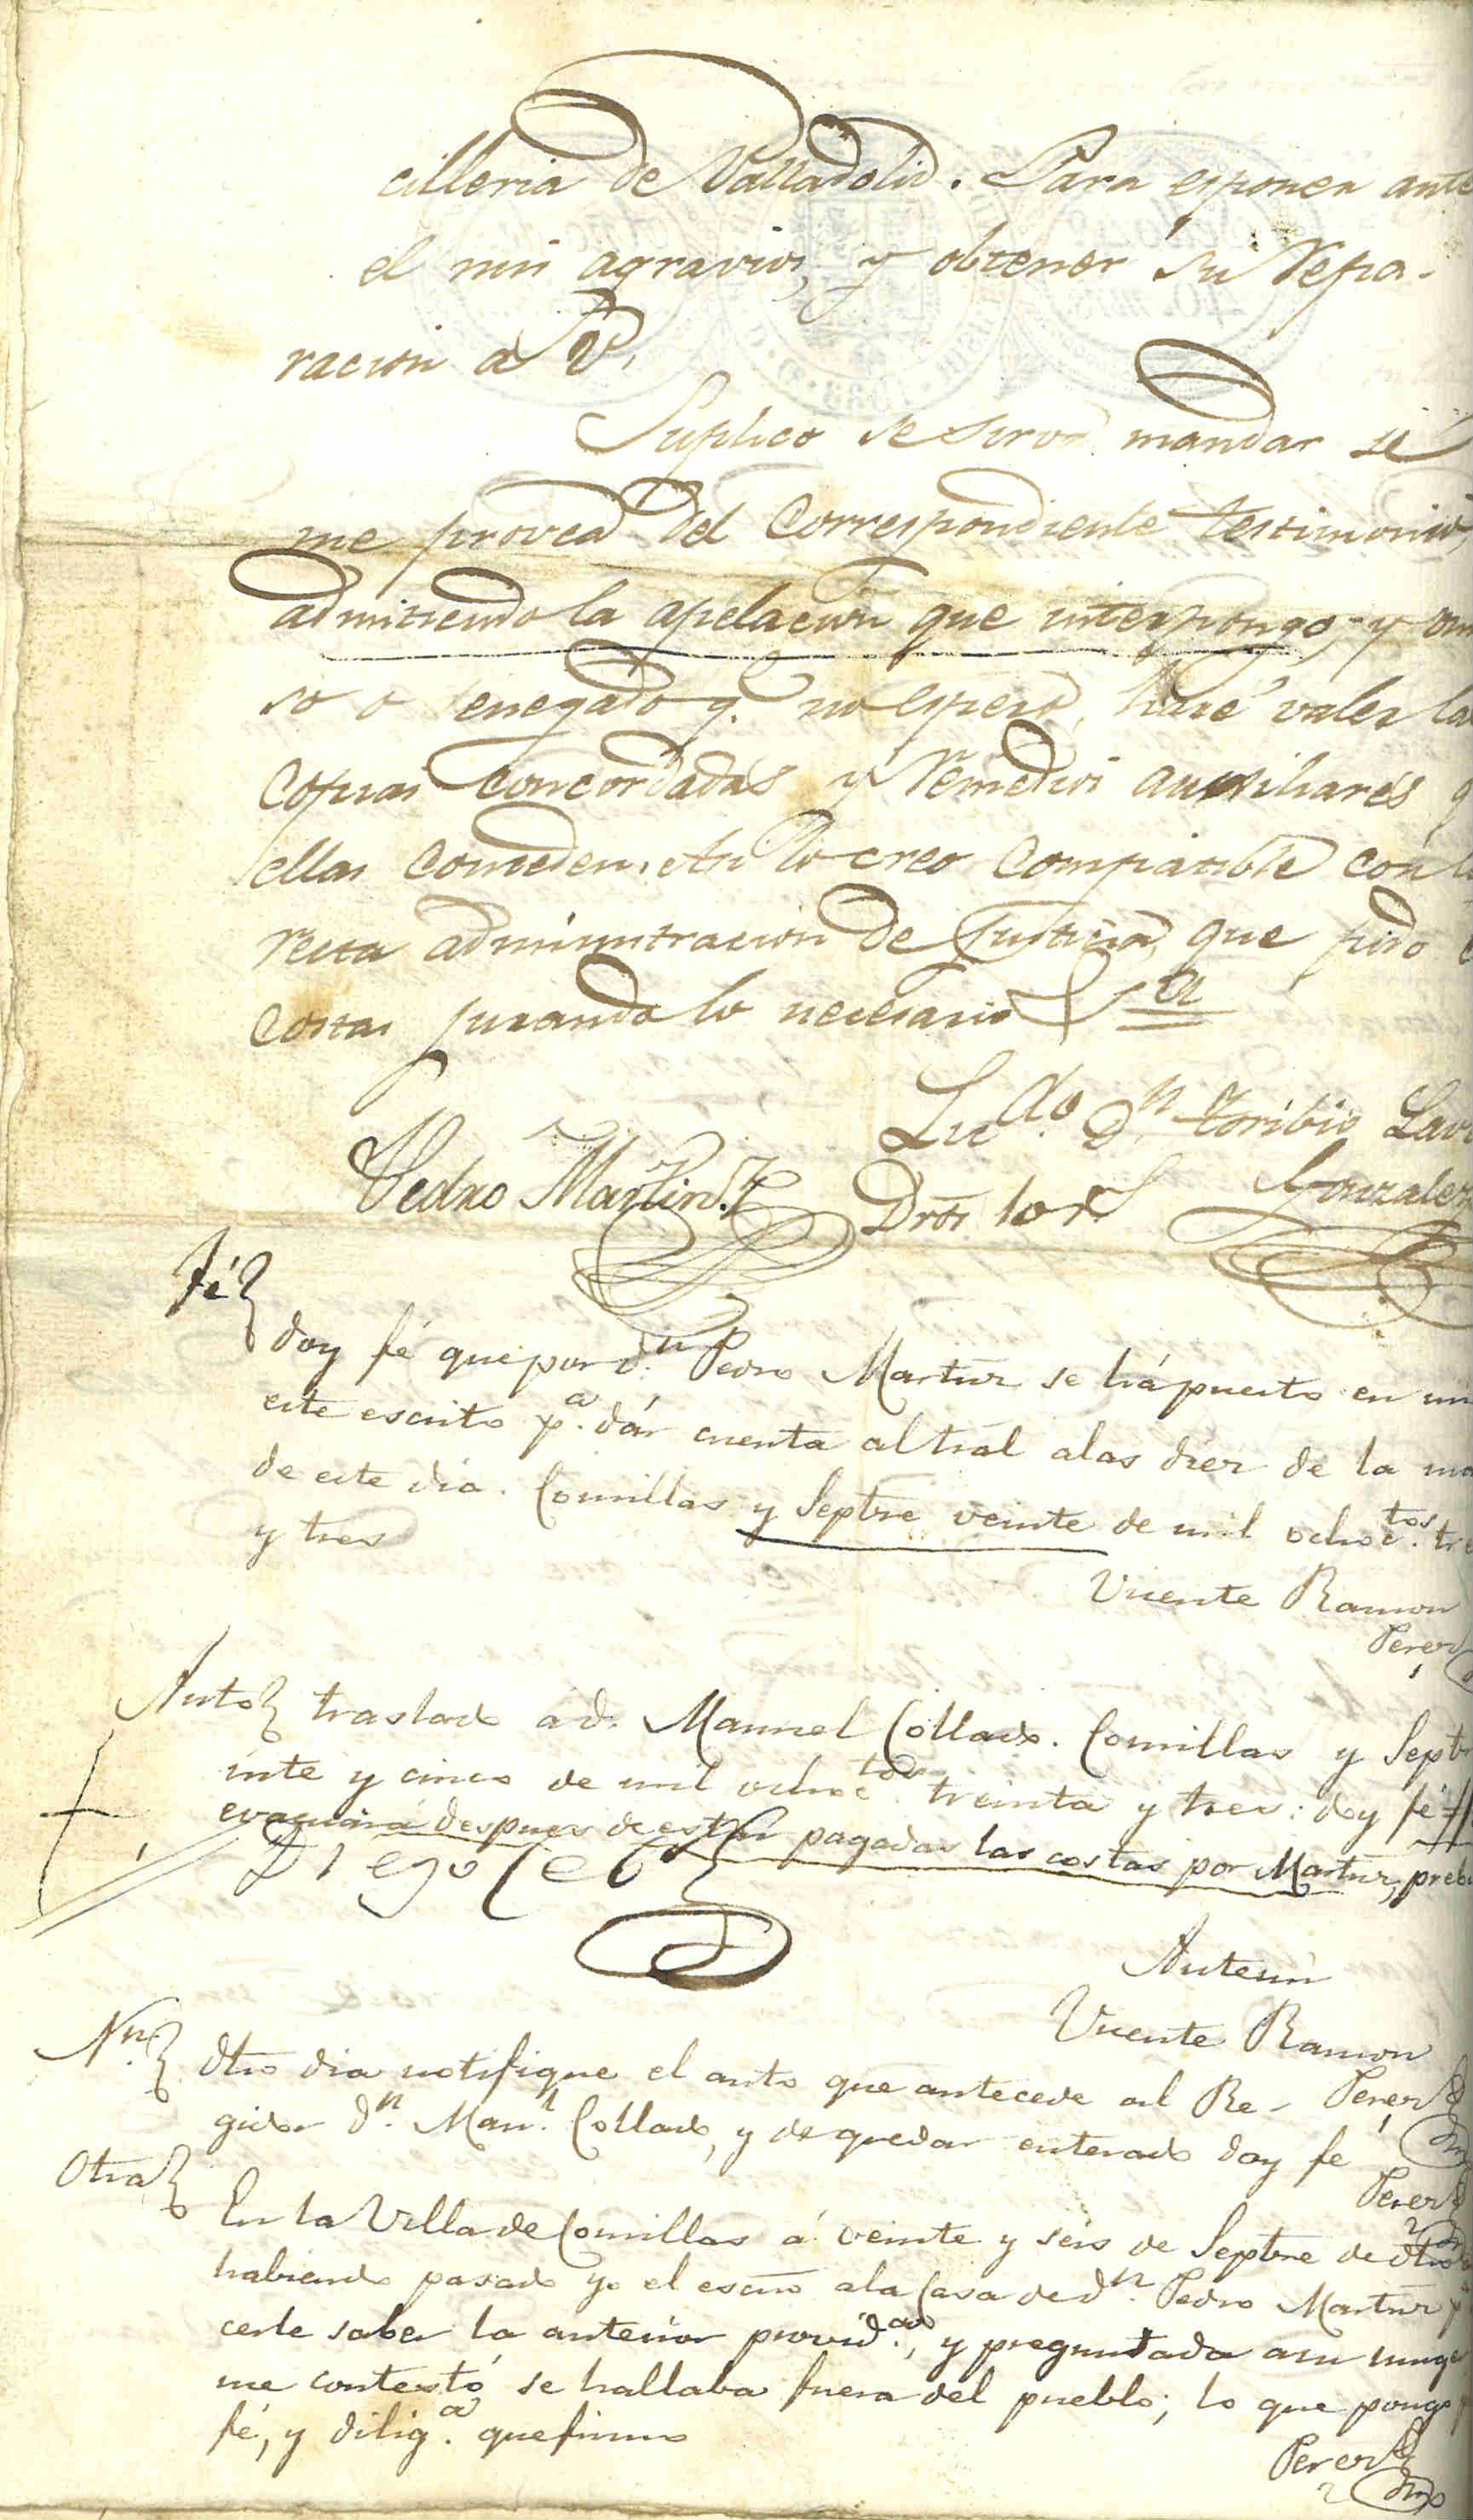 cilleria de Valladolid. Para esponer ante
el mis agravios, y obtener su repa-
racion a V.
Suplico se sirva mandar se
me provea del correspondiente testimonio,
admitiendo la apelacion que interpongo, y omi
so o denegado q. no espero, haré valer las
copias concordadas y remedios ausiliares q
ellas conceden. Asi lo creo compatible con la
recta administracion de Justicia, que pido
costas jurando lo necesario &a
Licdo. Dn. Toribio
Pedro Martinz Dros 10 rs Gonzalez
Fé
doy fé que por dn. Pedro Martinz se há puesto en mi
este escrito pa. dár cuenta al tral a las diez de la ma
de este dia. Comillas y Septre veinte de mil ochoctos. tre
y tres
Vicente Ramon
Perez
Auto traslado a d. Manuel Collado. Comillas y Septre
inte y cinco de mil ochoctos treinta y tres: doy fé
evacuará despues de estar pagadas las costas por Martinz,
Diego
Antemi
Vicente Ramon
Perez
Nn. Dho dia notifique el auto que antecede al Re-
gidor dn. Manl. Collado, y de quedar enterado doy fé
Perez
Otra
En la Villa de Comillas á veinte y seis de Septre de dho
habiendo pasado yo el escno a la Casa de dn. Pedro Martinz
cerle saber la anterior provida., y preguntada a su muger
me contestó se hallaba fuera del pueblo; lo que pongo
fé, y diliga. que firmo
Perez